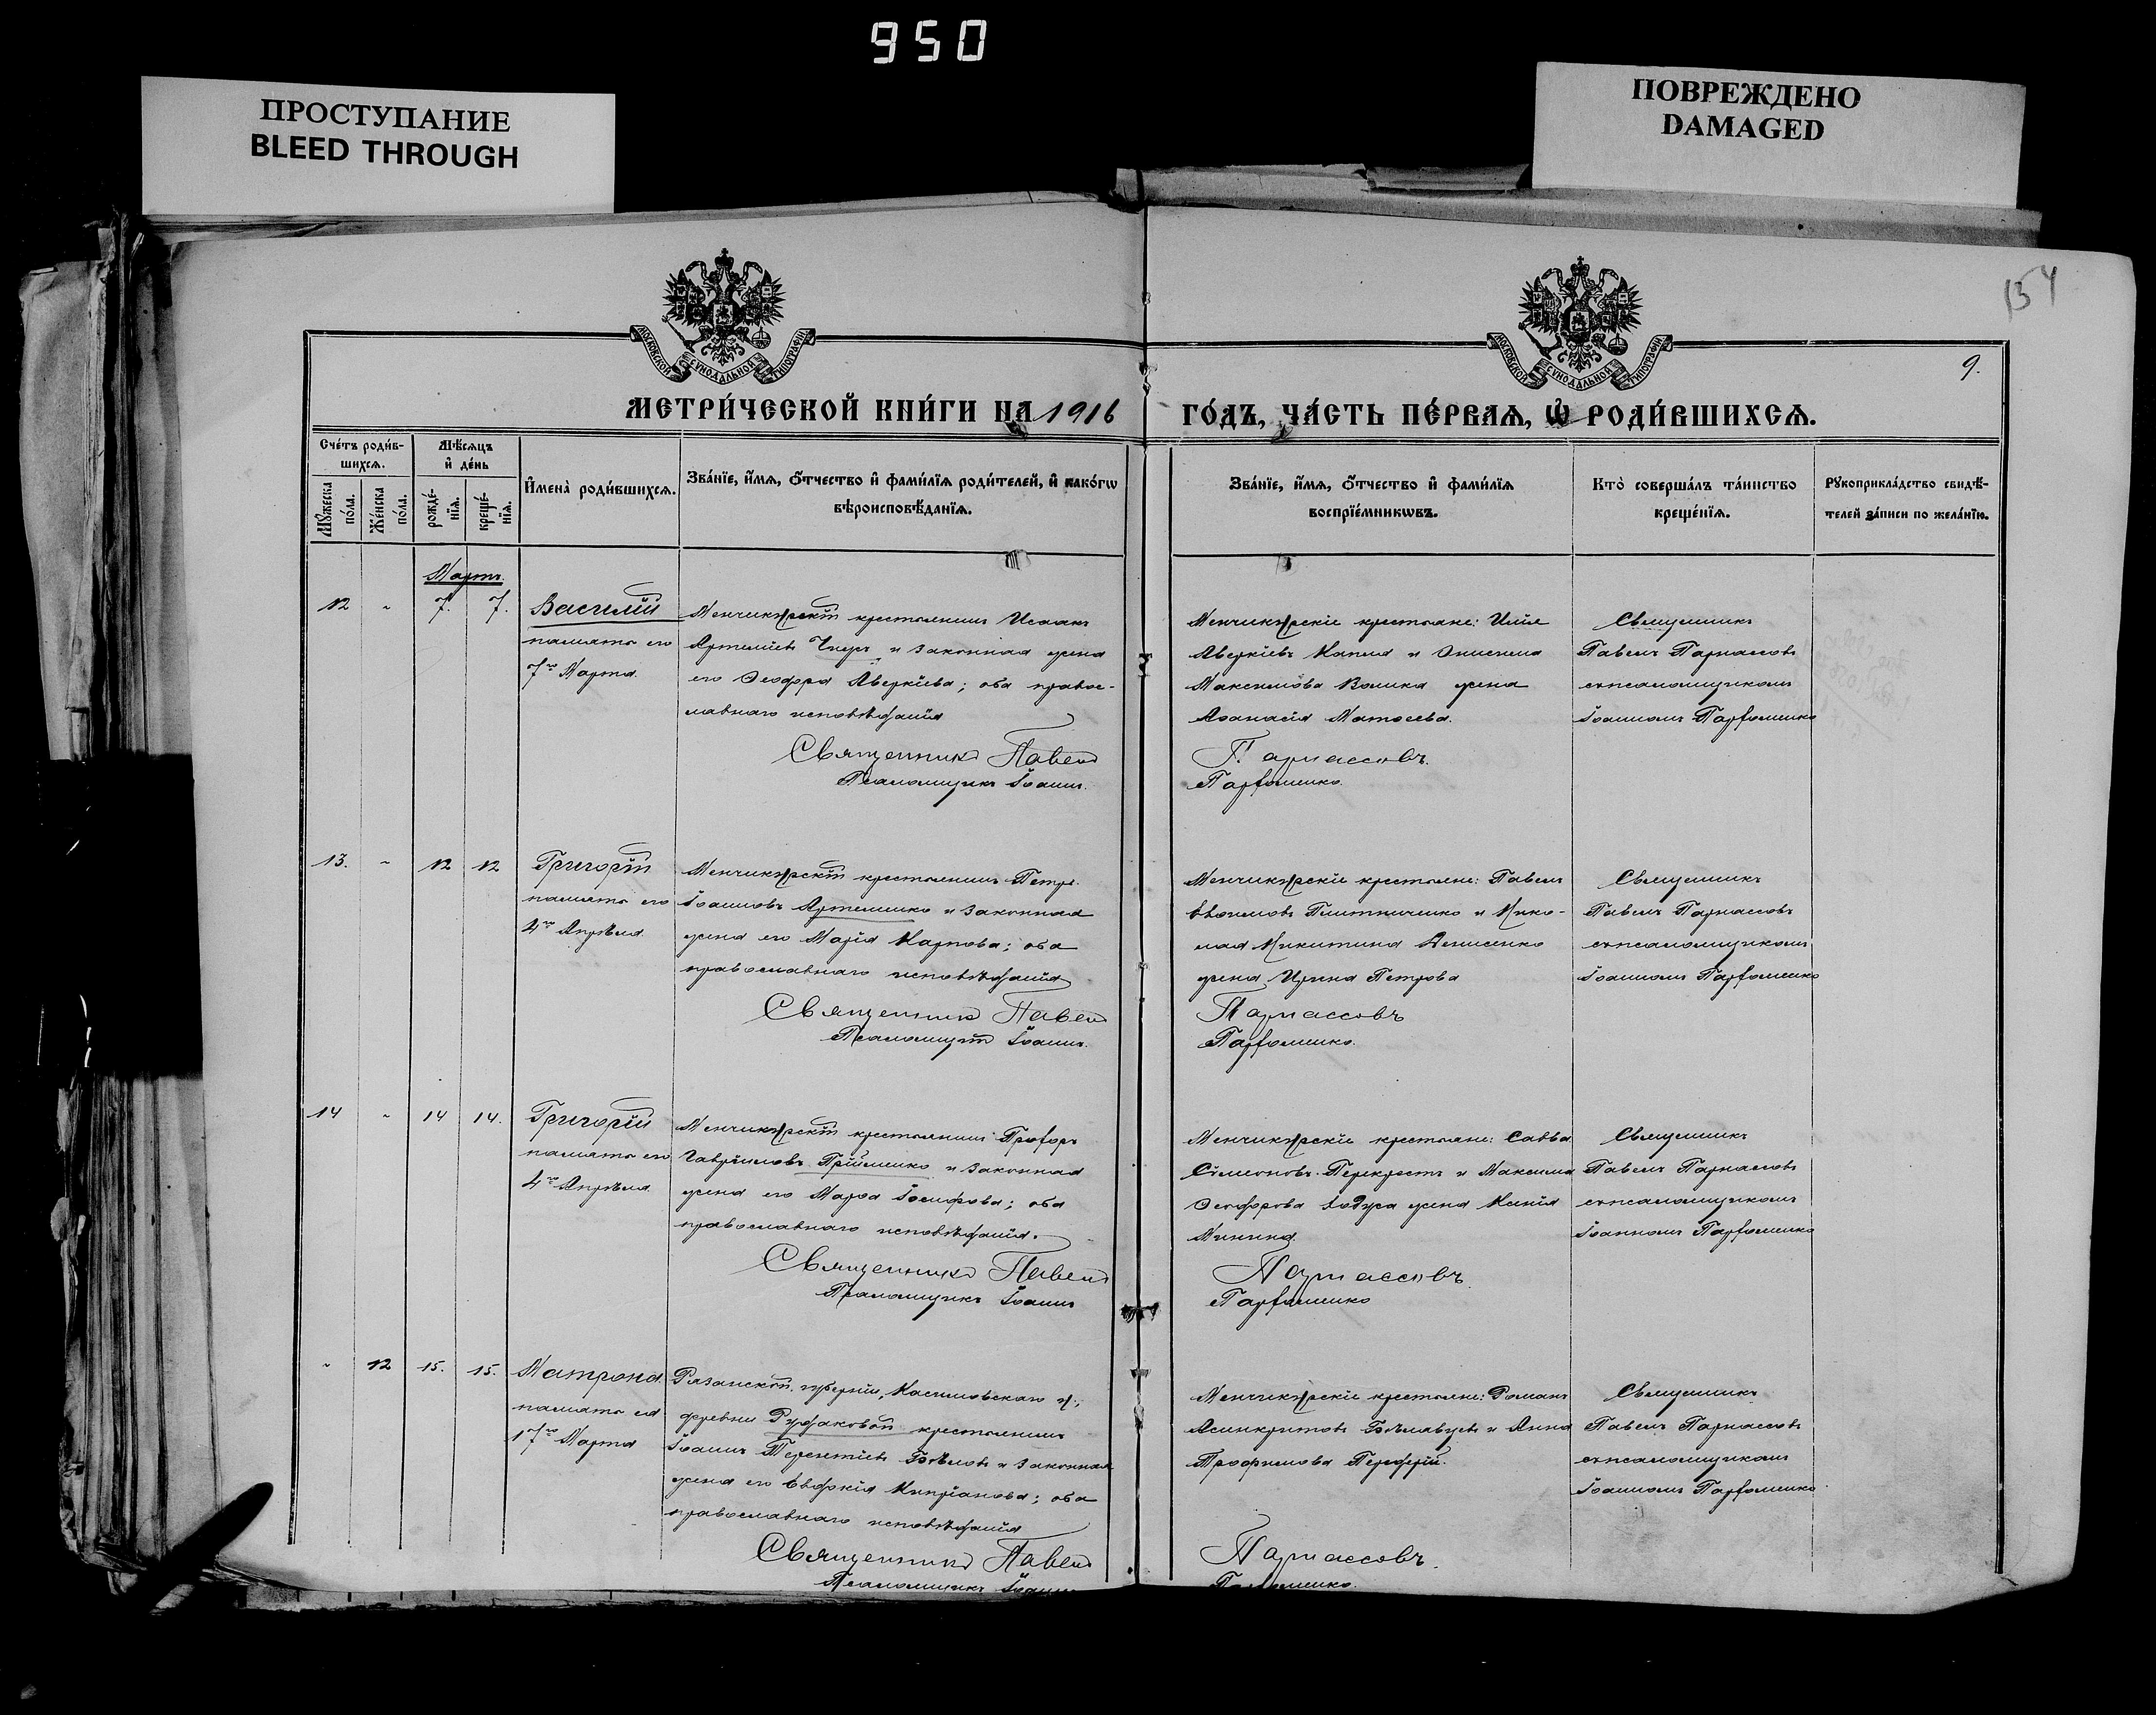 950
ПРОСТУПАНИЕ
BLEED THROUGH
ПОВРЕЖДЕНО
DAMAGED
154
9.
МОСКОВСКОЙ СѴНОДАЛЬНОЙ ТИПОГРАФІИ
МОСКОВСКОЙ СѴНОДАЛЬНОЙ ТИПОГРАФІИ
МЕТРИ́ЧЕСКОЙ КНИ́ГИ НА 1916 ГО́ДЪ, ЧА́СТЬ ПЕ́РВАѦ, Ѽ РОДИ́ВШИХСѦ.
Сче́тъ роди́в-
шихсѧ.
Мꙋжеска
по́ла.
Же́нска
по́ла.
Мѣ́сѧцъ
и҆ де́нь
рожде́-
нїѧ.
креще́-
нїѧ.
И҆мена̀ роди́вшихсѧ.
Зва́нїе, и҆́мѧ, ѻ҆́тчество и҆ фами́лїѧ роди́телей, и҆ како́гѡ
вѣроисповѣ́данїѧ.
Зва́нїе, и҆́мѧ, ѻ҆́тчество и҆ фами́лїѧ
воспрїе́мникѡвъ.
Кто̀ соверша́лъ та́инство
креще́нїѧ.
Рꙋкоприкла́дство свидѣ́-
телей за́писи по жела́нїю.
Мартъ.
12 " 7. 7. Василій
память его
7го Марта
Менчикурскій крестьянинъ Исаакъ
Артеміевъ и законная жена
его Ѳеодора Аверкіева; оба право-
славнаго исповѣданія
Священникъ Павелъ
Псаломщикъ Іоаннъ
Менчикурскіе крестьяне: Илія
Аверкіевъ Капля и Онисима
Максимова Волика жена
Аѳанасія Матѳеева.
Парнассовъ.
Парфоменко.
Священникъ
Павелъ Парнассовъ
съ псаломщикомъ
Іоанномъ Парфоменко
13. " 12 12 Григорій
память его
4го Апрѣля
Менчикурскій крестьянинъ Петръ
Іоанновъ Артеменко и законная
жена его Марія Карпова; оба
православнаго исповѣданія
Священникъ Павелъ
Псаломщикъ Іоаннъ.
Менчикурскіе крестьяне: Павелъ
Евѳимовъ Плитниченко и Нико-
лая Никитина Денисенко
жена Ирина Петрова
Парнассовъ
Парфоменко.
Священникъ
Павелъ Парнассовъ
съ псаломщикомъ
Іоанномъ Парфоменко
14 " 14 14. Григорій
память его
4го Апрѣля
Менчикурскій крестьянинъ Прохоръ
Гавріиловъ Прійменко и законная
жена его Марѳа Іосифова; оба
православнаго исповѣданія.
Священникъ Павелъ
Псаломщикъ Іоаннъ
Менчикурскіе крестьяне: Савва
Симеоновъ Перекрестъ и Максима
Ѳеодорова жена Ксенія
Минина.
Парнассовъ.
Парфоменко
Священникъ
Павелъ Парнассовъ
съ псаломщикомъ
Іоанномъ Парфоменко
" 12 15. 15. Матрона.
память ея
17го Марта
Рязанской губерніи, Касимовскаго у.,
деревни крестьянинъ
Іоаннъ Терентіевъ Бѣловъ и законная
жена его Евдокія Кипріанова; оба
православнаго исповѣданія
Священникъ Павелъ
Псаломщикъ Іоаннъ
Менчикурскіе крестьяне: Романъ
Асинкритовъ и Анна
Трофимова
Парнассовъ.
Парфоменко.
Священникъ
Павелъ Парнассовъ
съ псаломщикомъ
Іоанномъ Парфоменко